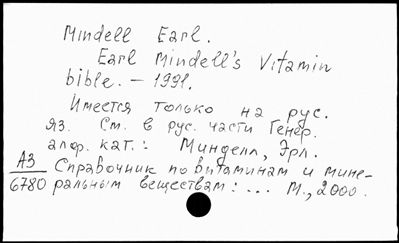 Mindell Earl.
Earl Mindell's Vitamin
bible. – 1991.
Имеется только на рус.
яз. См. в рус. части Генер.
алф. кат.: Минделл, Эрл.
АЗ Справочник по витаминам и мине-
6780 ральным веществам: ... М., 2000.